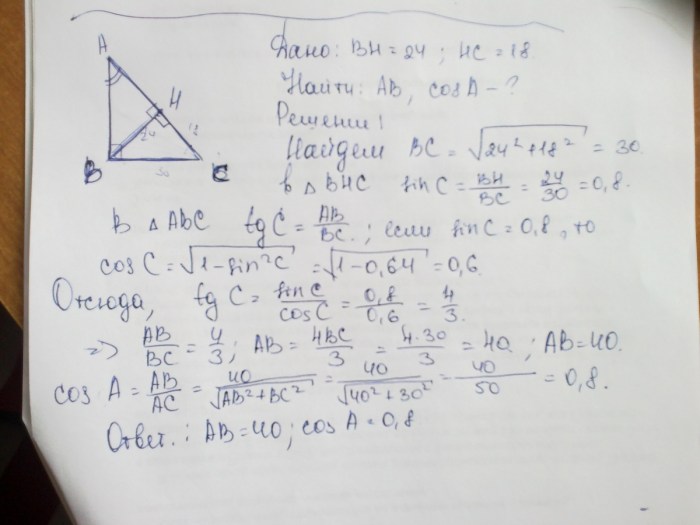 A
H
24
18
B
30
C
Дано: BH = 24 ; HC = 18.
Найти: AB, cosA - ?
Решение:
Найдем BC = √24² + 18² = 30.
В △ BHC sin C = BH/BC = 24/30 = 0,8.
В △ ABC tg C = AB/BC ; если sin C = 0,8, то
cos C = √1 - sin²C = √1 - 0,64 = 0,6.
Отсюда, tg C = sin C/cos C = 0,8/0,6 = 4/3.
=> AB/BC = 4/3 ; AB = 4BC/3 = 4·30/3 = 40. ; AB = 40.
cos A = AB/AC = 40/√AB² + BC² = 40/√40² + 30² = 40/50 = 0,8.
Ответ: AB = 40 ; cos A = 0,8